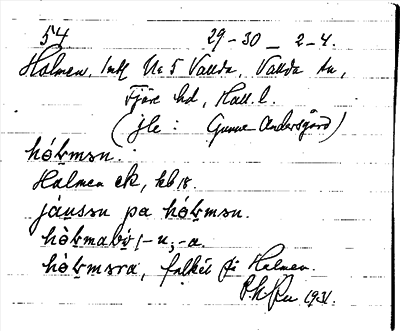 54 29-30 _ 2-4.
Holmen, Intl No 5 Vallda, Vallda sn,
Fjäre hd, Hall. l.
(jfe: Gunne Andersgård)
hóḷmən.
Holmen ek, kb 18.
jáu̯sən pa hóḷmən.
hòḷmabò, -n, -a.
hòḷmsra, folket på Holmen.
1931.